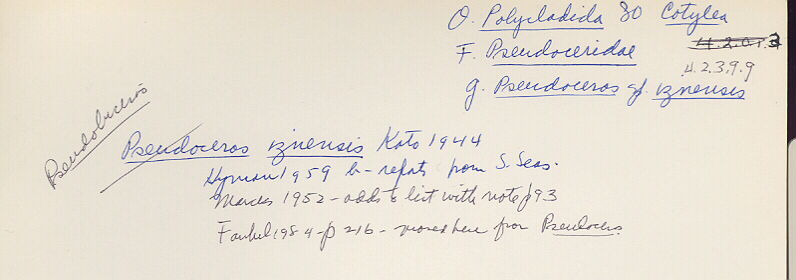 O. Polycladida SO Cotylea
F. Pseudoceridae 4.2.0.13
4.2.3.9.9
g. Pseudoceros sp. iznensis
Pseudobiceros
Pseudoceros iznensis Kato 1944
Hyman 1959 b- reports from S. Seas.
Marcus 1952 - adds to list with note p93
Faubel 1984 - p 216 - moved here from Pseudoceros.